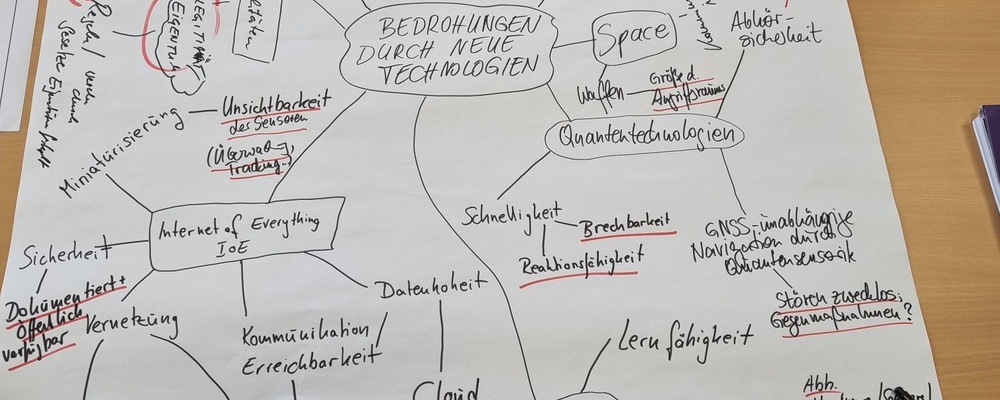 BEDROHUNGEN
DURCH NEUE
TECHNOLOGIEN
Space
Waffen
Größe d.
Angriffsraums
Abhör-
sicherheit
Quantentechnologien
Schnelligkeit
Brechbarkeit
Reaktionsfähigkeit
GNSS-unabhängige
Navigation durch
Quantensensorik
Stören zwecklos;
Gegenmaßnahmen?
Lernfähigkeit
Abb.
EIGENTUM
LEGITIMITÄT
Regeln/
Miniaturisierung
Unsichtbarkeit
des Sensoren
Tracking...
Internet of Everything
IoE
Sicherheit
Dokumentiert +
Öffentlich
verfügbar
Vernetzung
Kommunikation
Erreichbarkeit
Datenhoheit
Cloud